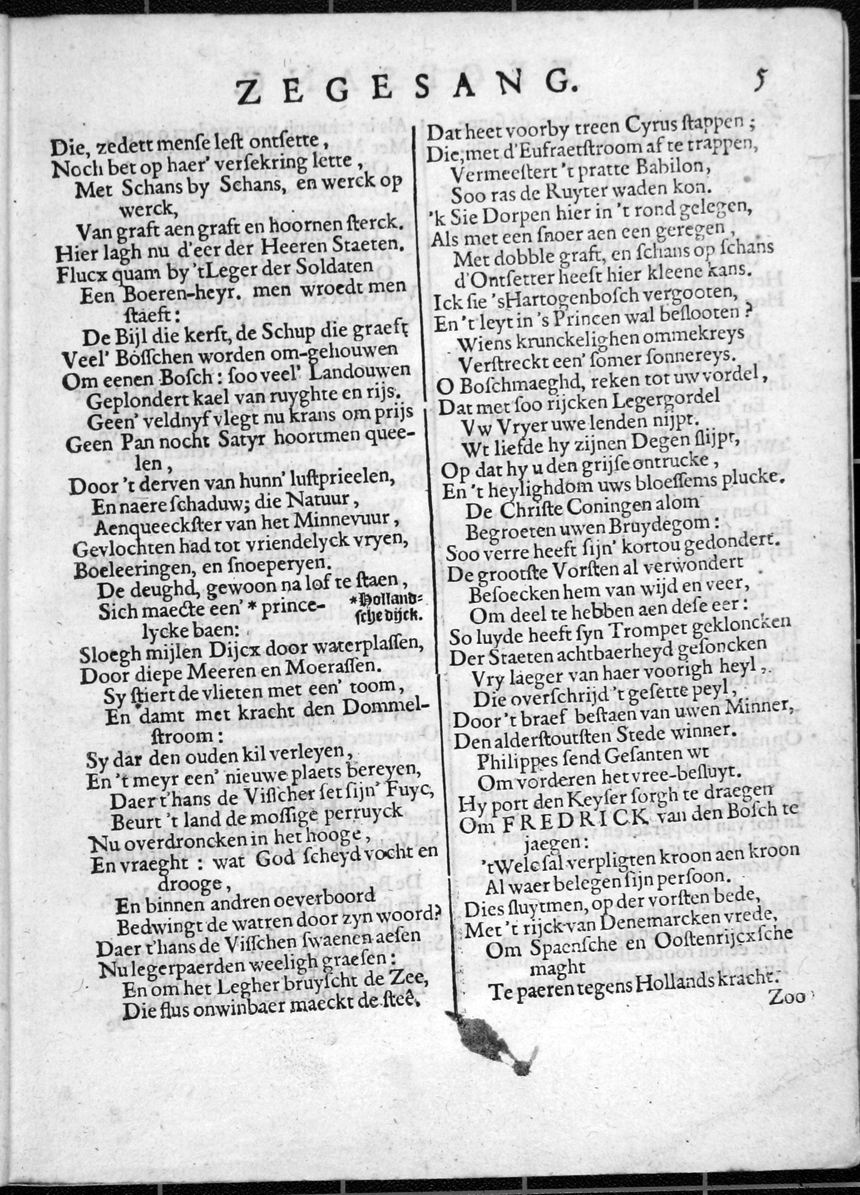 ZEGESANG. 5
Die, zedett mense lest ontsette,
Noch bet op haer' versekring lette,
Met Schans by Schans, en werck op
werck,
Van graft aen graft en hoornen sterck.
Hier lagh nu d'eer der Heeren Staeten.
Flucx quam by 'tLeger der Soldaten
Een Boeren-heyr. men wroedt men
staeft:
De Bijl die kerft, de Schup die graeft
Veel' Bosschen worden om-gehouwen
Om eenen Bosch: soo veel' Landouwen
Geplondert kael van ruyghte en rijs.
Geen' veldnyf vlegt nu krans om prijs
Geen Pan nocht Satyr hoortmen quee-
len,
Door 't derven van hunn' lustprieelen,
En naere schaduw; die Natuur,
Aenqueeckster van het Minnevuur,
Gevlochten had tot vriendelyck vryen,
Boeleeringen, en snoeperyen.
De deughd, gewoon na lof te staen,
Sich maecte een' * prince-
*Holland=
sche dijck.
lycke baen:
Sloegh mijlen Dijcx door waterplassen,
Door diepe Meeren en Moerassen.
Sy stiert de vlieten met een' toom,
En damt met kracht den Dommel-
stroom:
Sy dar den ouden kil verleyen,
En 't meyr een' nieuwe plaets bereyen,
Daer t'hans de Visscher set sijn' Fuyc,
Beurt 't land de mossige perruyck
Nu overdroncken in het hooge,
En vraeght: wat God scheyd vocht en
drooge,
En binnen andren oeverboord
Bedwingt de watren door zyn woord?
Daer t'hans de Visschen swaenen aesen
Nu legerpaerden weeligh graesen:
En om het Legher bruyscht de Zee,
Die flus onwinbaer maeckt de steê.
Dat heet voorby treen Cyrus stappen;
Die, met d'Eufraetstroom af te trappen,
Vermeestert 't pratte Babilon,
Soo ras de Ruyter waden kon.
'k Sie Dorpen hier in 't rond gelegen,
Als met een snoer aen een geregen,
Met dobble graft, en schans op schans
d'Ontsetter heeft hier kleene kans.
Ick sie 'sHartogenbosch vergooten,
En 't leyt in 's Princen wal beslooten?
Wiens krunckelighen ommekreys
Verstreckt een' somer sonnereys.
O Boschmaeghd, reken tot uw vordel,
Dat met soo rijcken Legergordel
Vw Vryer uwe lenden nijpt.
Wt liefde hy zijnen Degen slijpt,
Op dat hy u den grijse ontrucke,
En 't heylighdom uws bloessems plucke.
De Christe Coningen alom
Begroeten uwen Bruydegom:
Soo verre heeft sijn' kortou gedondert.
De grootste Vorsten al verwondert
Besoecken hem van wijd en veer,
Om deel te hebben aen dese eer:
So luyde heeft syn Trompet gekloncken
Der Staeten achtbaerheyd gesoncken
Vry laeger van haer voorigh heyl,
Die overschrijd 't gesette peyl,
Door 't braef bestaen van uwen Minner,
Den alderstoutsten Stede winner.
Philippes send Gesanten wt
Om vorderen het vree-besluyt.
Hy port den Keyser sorgh te draegen
Om FREDRICK van den Bosch te
jaegen:
'tWelc sal verpligten kroon aen kroon
Al waer belegen sijn persoon.
Dies sluytmen, op der vorsten bede,
Met 't rijck van Denemarcken vrede,
Om Spaensche en Oostenrijcxsche
maght
Te paeren tegens Hollands kracht.
Zoo